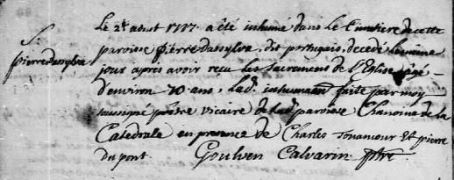 Le 2e aoust 1717 a été inhumé dans le Cimetiere de cette
S.
pierre dasylva
paroisse pierre dasylva, dit portugais, decedé le même
jour apres avoir recu les sacremens de l'Eglise, agé
d'environ 70 ans, Lad. inhumation faite par moy
soussigné prêtre vicaire de lad. paroisse Chanoine de la
Catedrale en presence de Charles Et pierre
du pont. Goulven Calvarin ptre